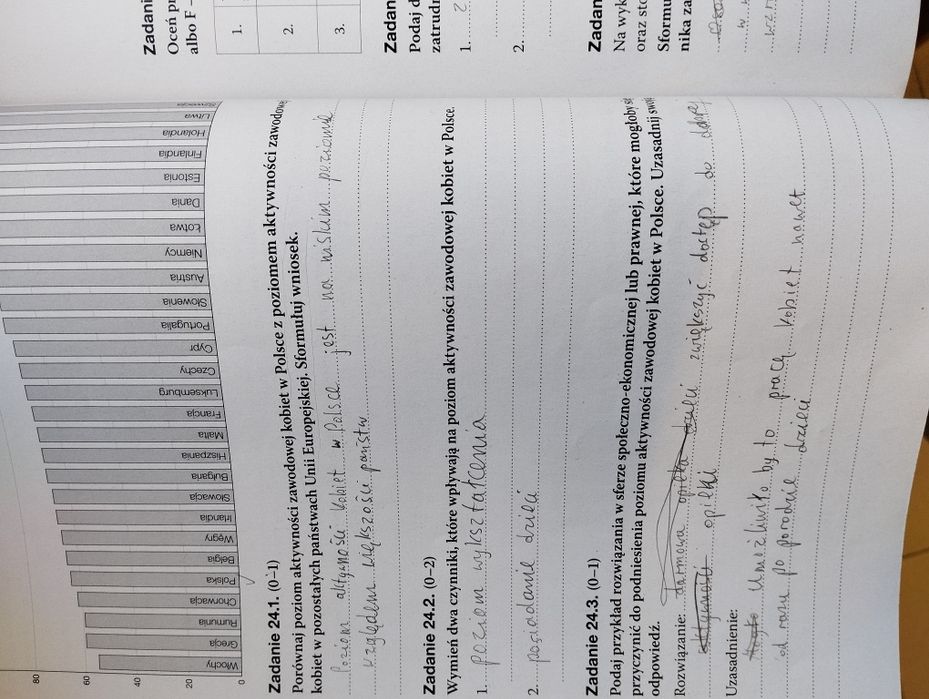 80
60
40
20
0
Włochy
Grecja
Rumunia
Chorwacja
Polska
Belgia
Węgry
Irlandia
Słowacja
Bułgaria
Hiszpania
Malta
Francja
Luksemburg
Czechy
Cypr
Portugalia
Słowenia
Austria
Niemcy
Łotwa
Dania
Estonia
Finlandia
Holandia
Litwa
Zadanie 24.1. (0–1)
Porównaj poziom aktywności zawodowej kobiet w Polsce z poziomem aktywności zawodowej
kobiet w pozostałych państwach Unii Europejskiej. Sformułuj wniosek.
Poziom aktywności kobiet w Polsce jest na niskim poziomie
względem większości państw
Zadanie 24.2. (0–2)
Wymień dwa czynniki, które wpływają na poziom aktywności zawodowej kobiet w Polsce.
1. poziom wykształcenia
2. posiadanie dzieci
Zadanie 24.3. (0–1)
Podaj przykład rozwiązania w sferze społeczno-ekonomicznej lub prawnej, które mogłoby się
przyczynić do podniesienia poziomu aktywności zawodowej kobiet w Polsce. Uzasadnij swoją
odpowiedź.
Rozwiązanie: darmowa opieka dzieci zwiększyć dostęp do dobrej
opieki
Uzasadnienie:
Umożliwiło by to pracę kobiet nawet
od razu po porodzie dzieci
Zadani
Oceń pr
albo F –
1.
2.
3.
Zadan
Podaj d
zatrudn
1.
2.
Zadan
Na wyk
oraz sto
Sform
nika za